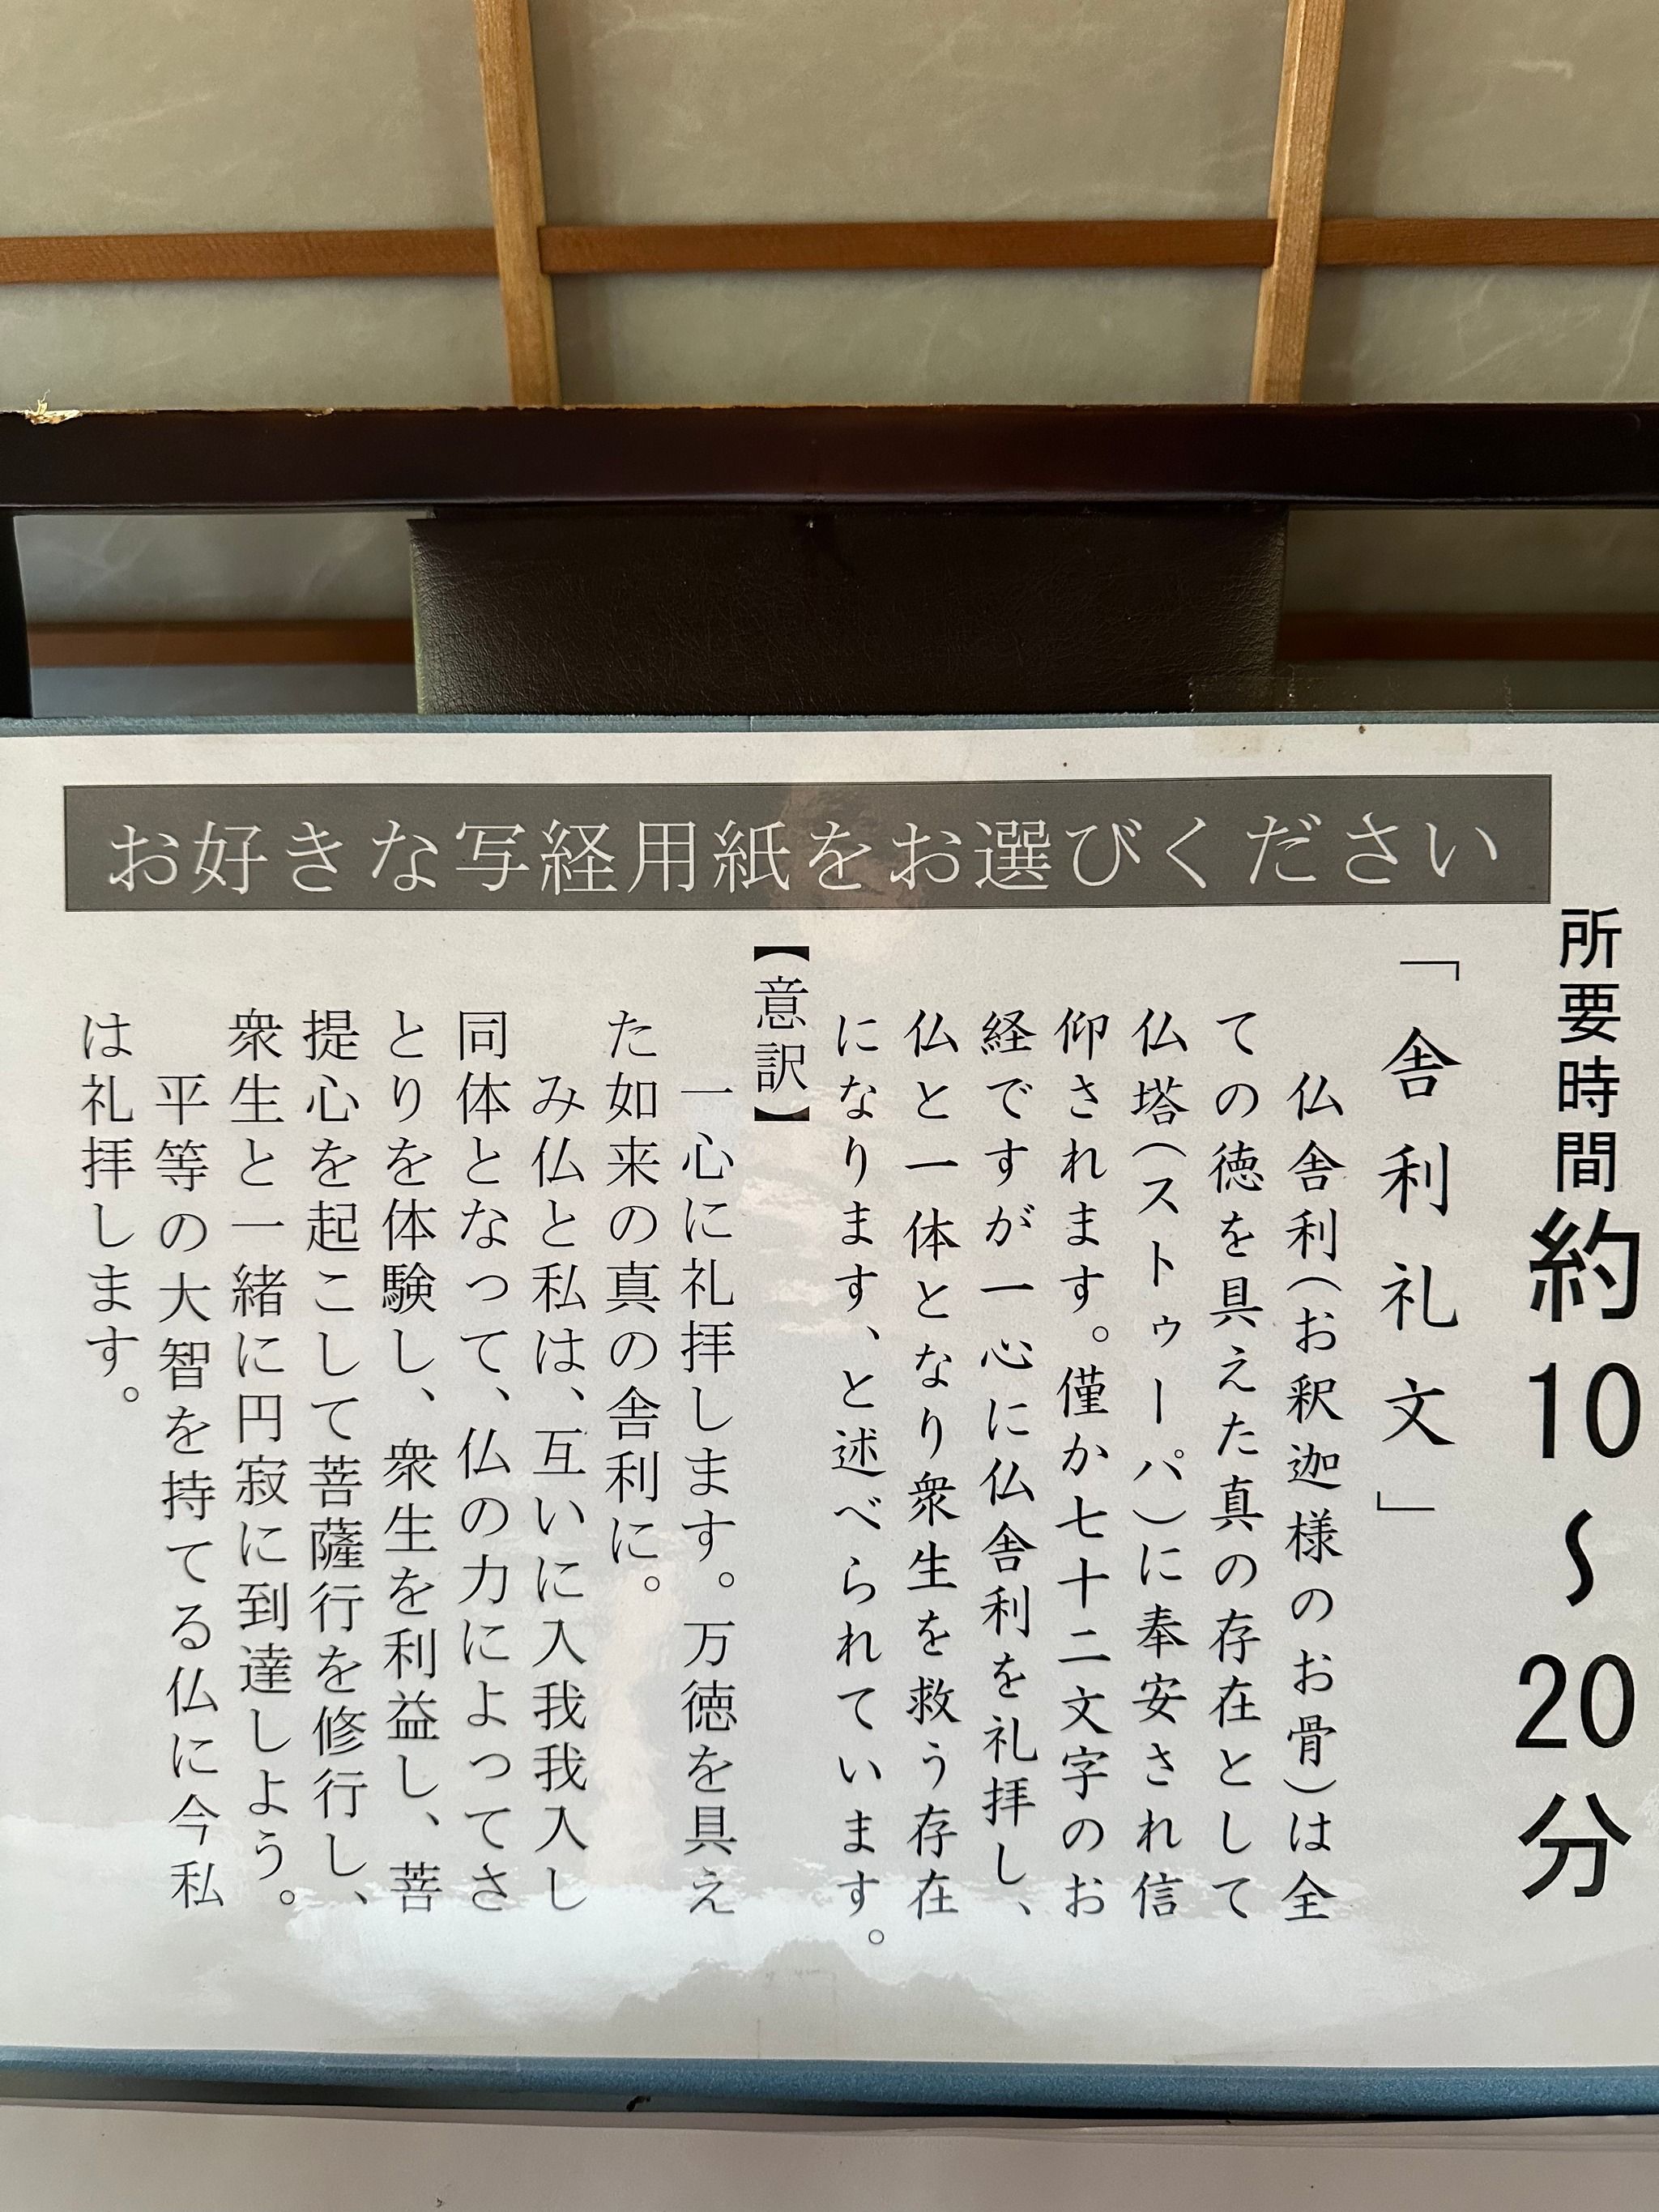 お好きな写経用紙をお選びください
所要時間約10～20分
「舎利礼文」
仏舎利(お釈迦様のお骨)は全
ての徳を具えた真の存在として
仏塔(ストゥーパ)に奉安され信
仰されます。僅か七十二文字のお
経ですが一心に仏舎利を礼拝し、
仏と一体となり衆生を救う存在
になります、と述べられています。
【意訳】
一心に礼拝します。万徳を具え
た如来の真の舎利に。
み仏と私は、互いに入我我入し
同体となって、仏の力によってさ
とりを体験し、衆生を利益し、菩
提心を起こして菩薩行を修行し、
衆生と一緒に円寂に到達しよう。
平等の大智を持てる仏に今私
は礼拝します。